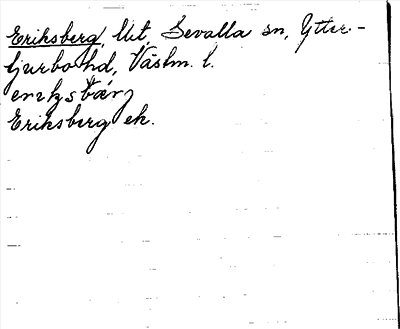 Eriksberg, Ut, Sevalla sn, Ytter-
tjurbo hd, Västm. l.
eriksbärj
Eriksberg ek.